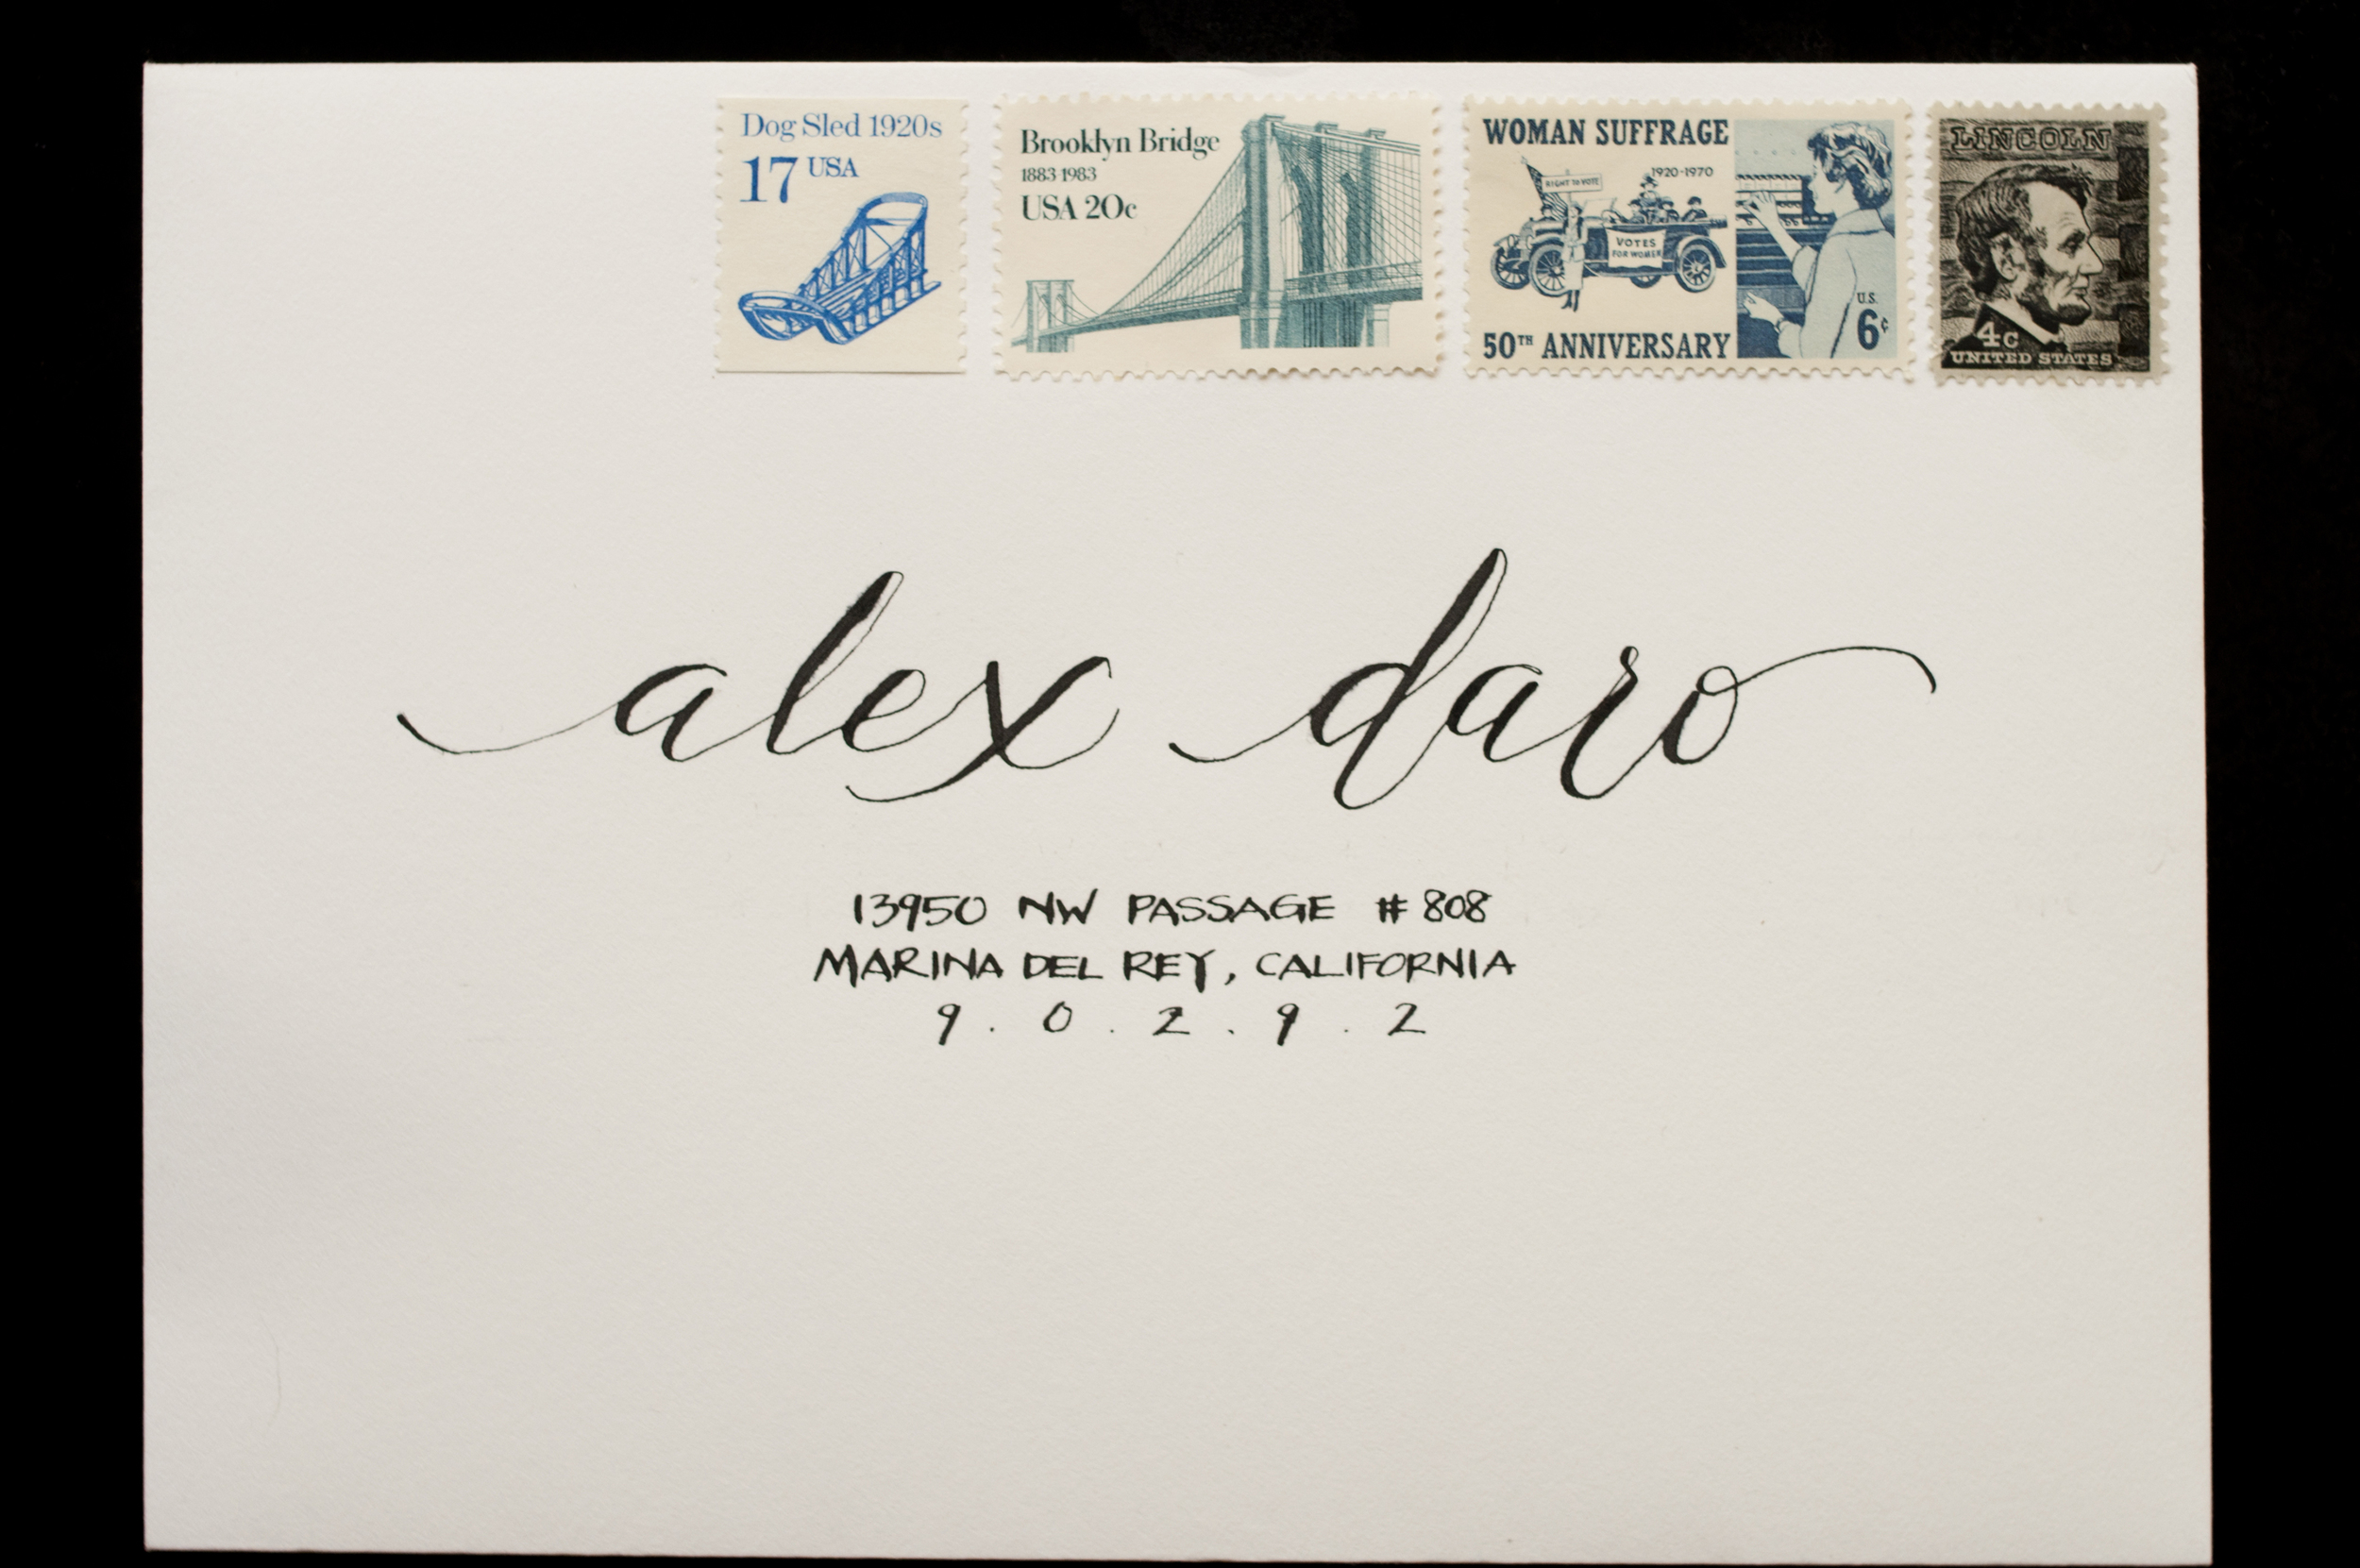 Dog Sled 1920s
17 USA
Brooklyn Bridge
1883 1983
USA 20c
WOMAN SUFFRAGE
1920-1970
RIGHT TO VOTE
VOTES
FOR WOMEN
U.S.
6¢
50TH ANNIVERSARY
LINCOLN
4c
UNITED STATES
alex daro
13950 NW PASSAGE #808
MARINA DEL REY, CALIFORNIA
9 . 0 . 2 . 9 . 2